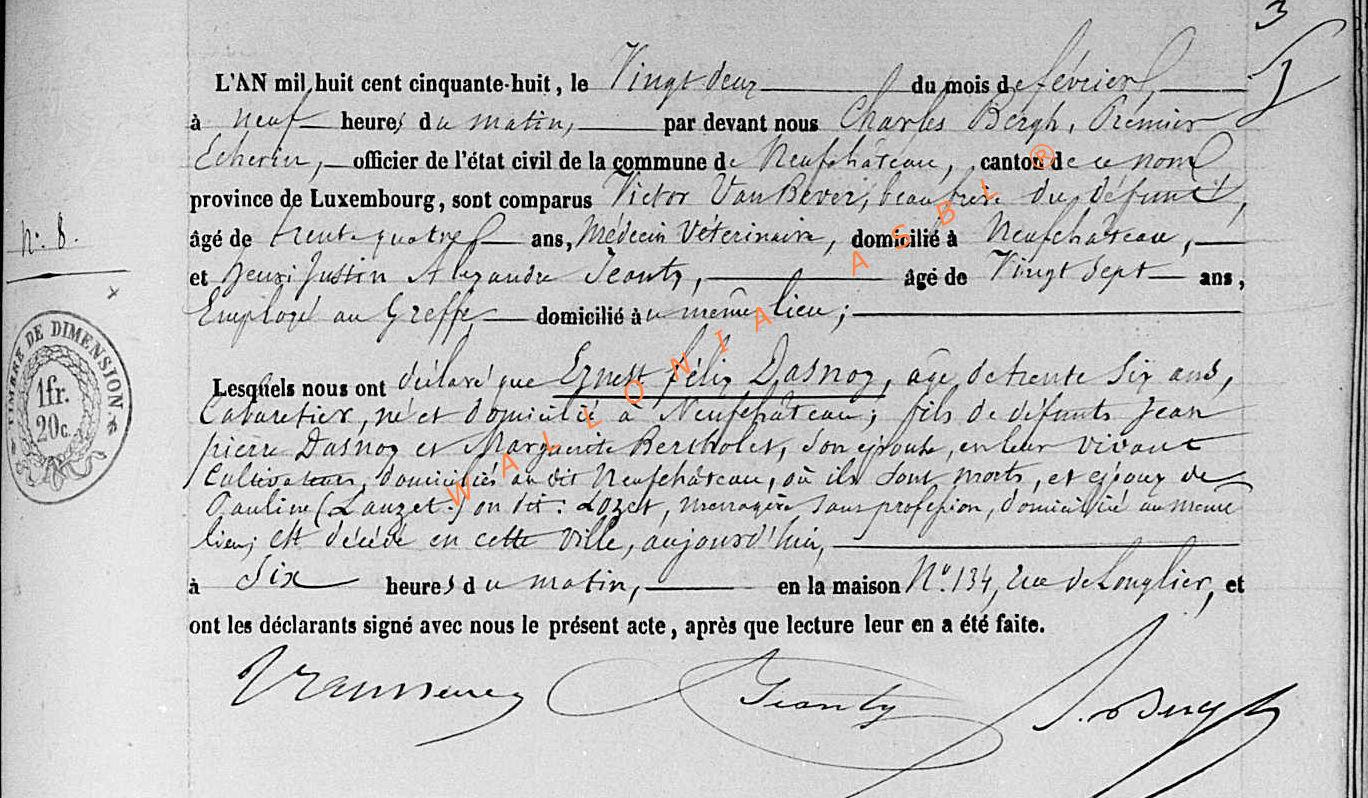 3
L'AN mil huit cent cinquante-huit, le Vingt deux du mois de février,
à neuf heures du matin, par devant nous Charles Bergh, Premier
Echevin, officier de l'état civil de la commune de Neufchâteau, canton de ce nom
province de Luxembourg, sont comparus Victor Van Bever, beau frère du défunt,
âgé de trente quatre ans, Médecin Vétérinaire, domicilié à Neufchâteau,
N°. 8.
et Henri Justin Alexandre Jeanty, âgé de Vingt Sept ans,
Employé au Greffe, domicilié au même lieu;
TIMBRE DE DIMENSION.
1fr.
20c.
Lesquels nous ont déclaré que Ernest Félix Dasnoy, âgé de trente Six ans,
Cabaretier, né et domicilié à Neufchâteau; fils de défunts Jean
pierre Dasnoy et Marguerite Bertholet, son épouse, en leur vivant
Cultivateurs, domiciliés au dit Neufchâteau, où ils sont morts, et époux de
Pauline (Lauzet:) ou dit: Lozet, menagère sans profession, domicilié au même
lieu; est décédé en cette Ville, aujourd'hui,
à Six heures du matin, en la maison N°. 134, rue de Longlier, et
ont les déclarants signé avec nous le présent acte, après que lecture leur en a été faite.
Jeanty
Bergh
WALLONIA ASBL ®